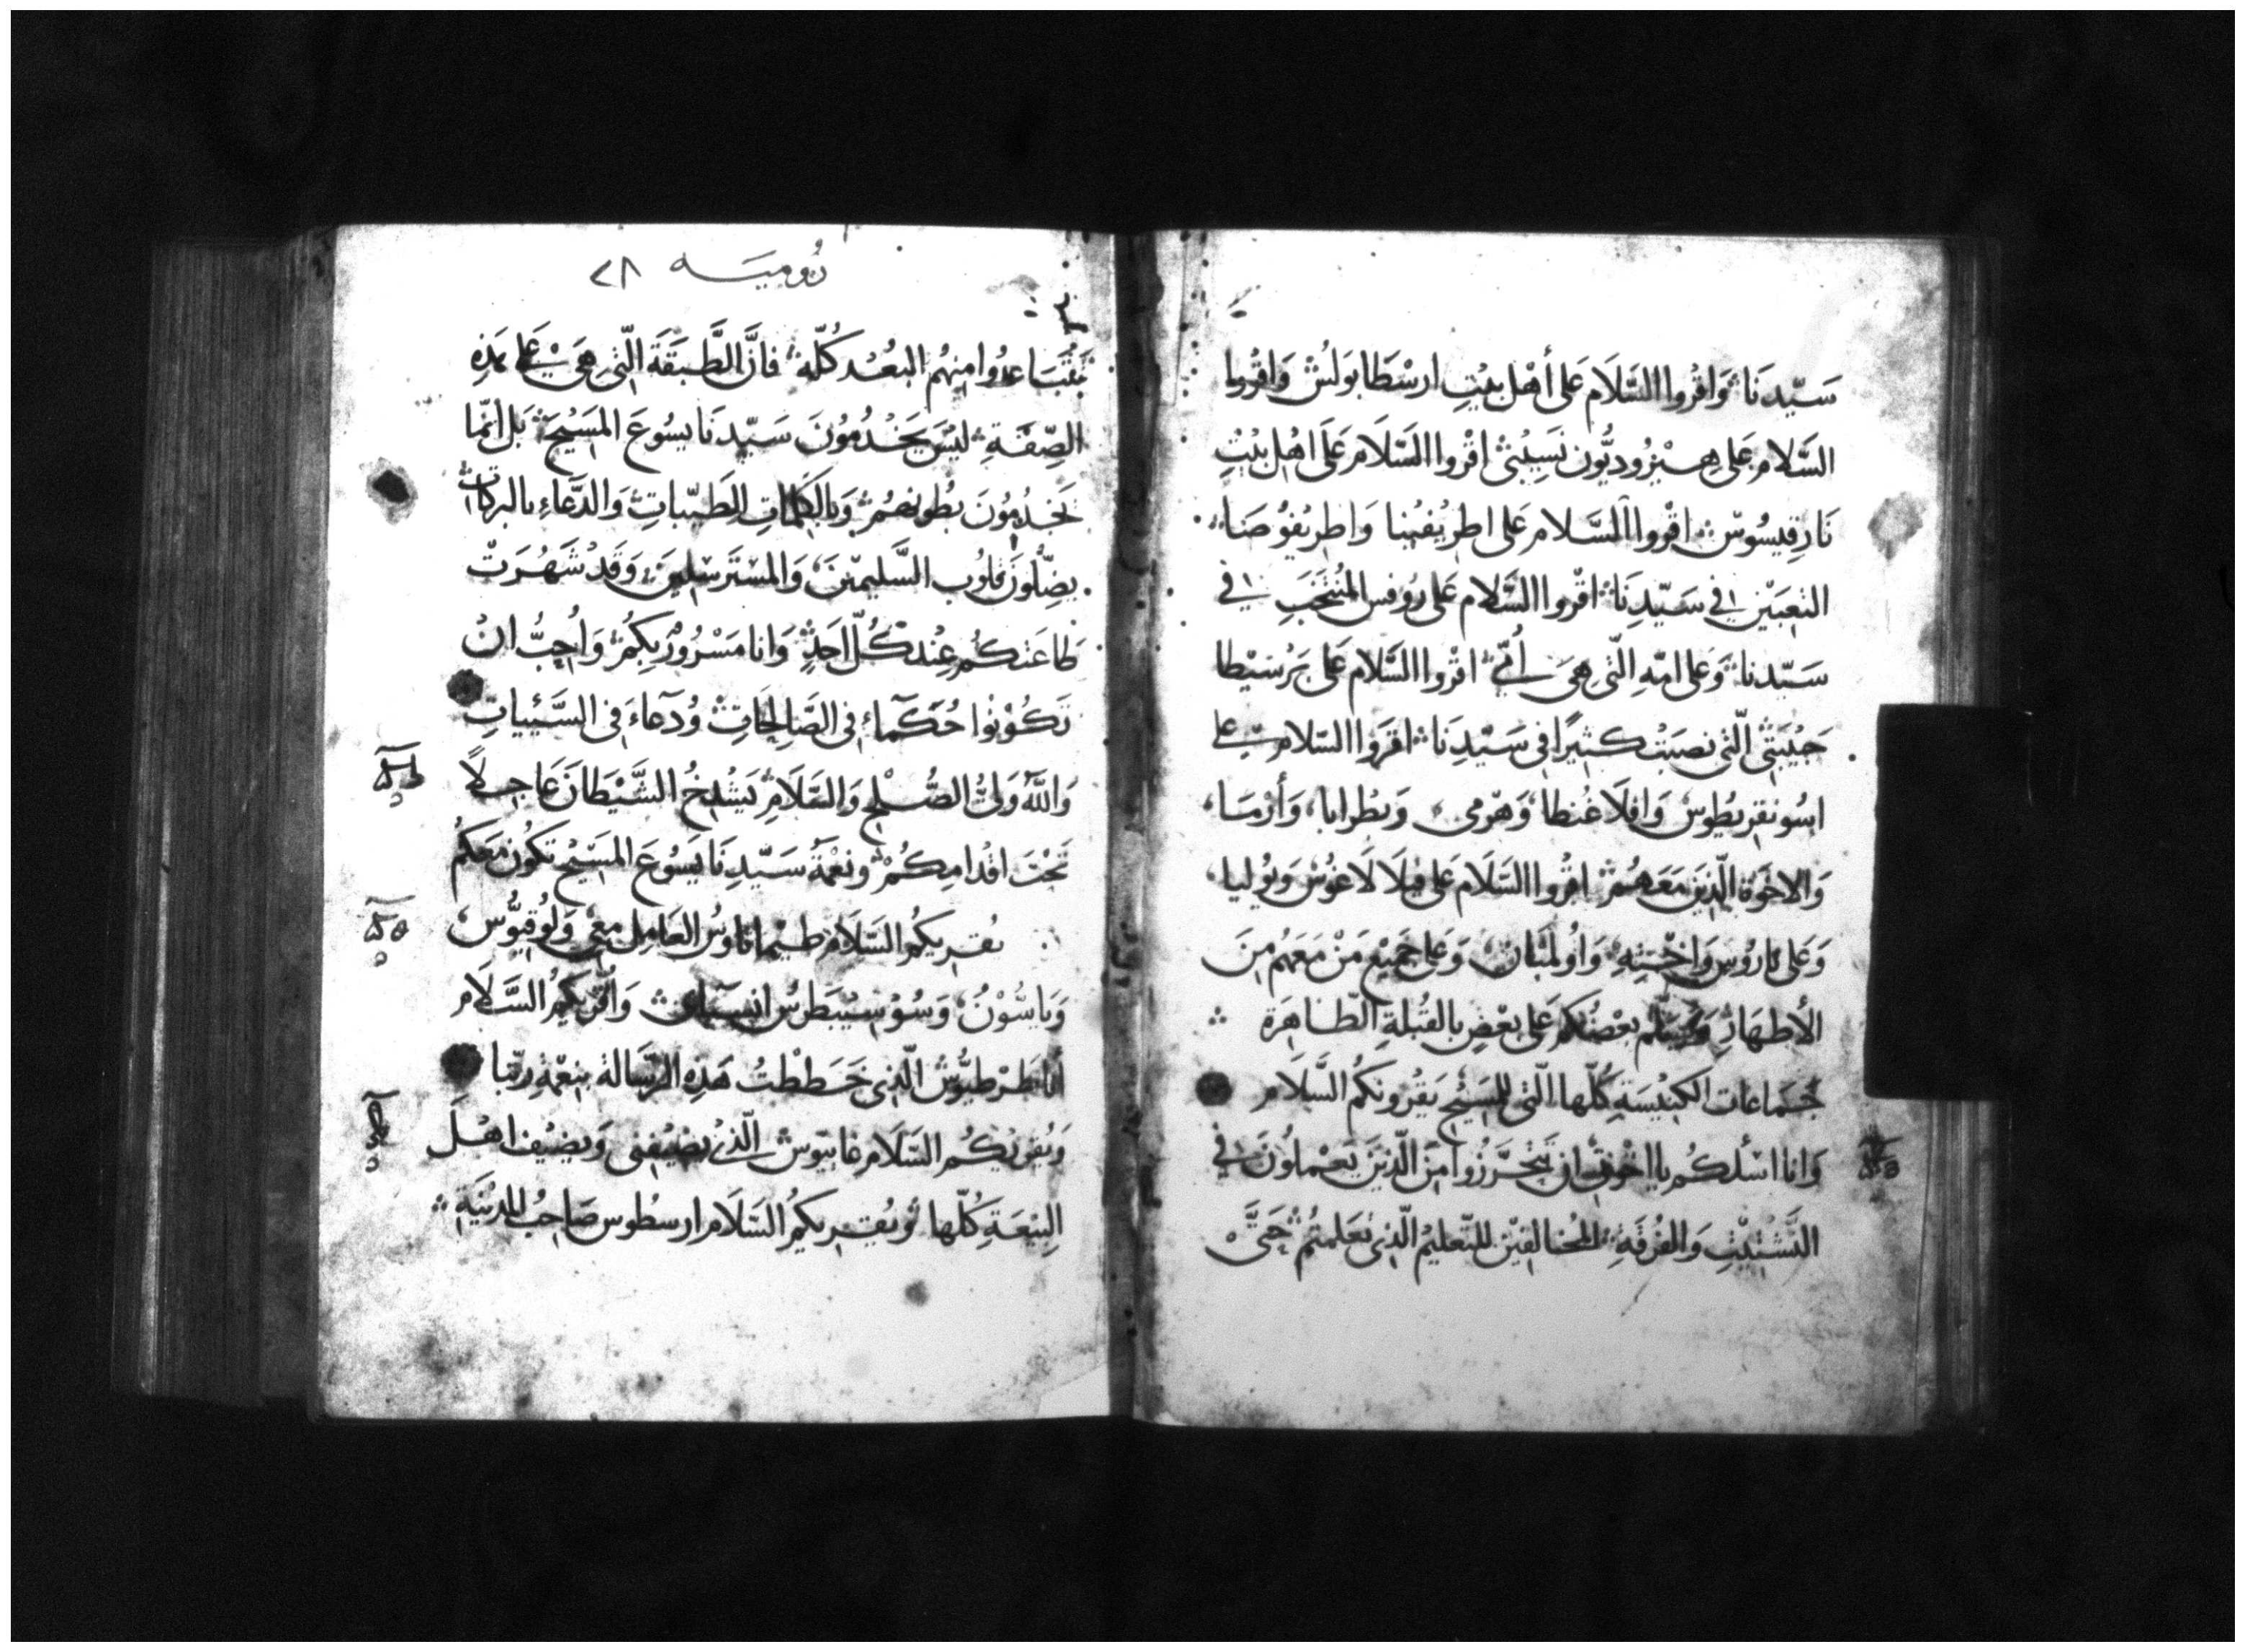 سَيّدنَا وَاقْروا السَّلَامَ عَلى أهْل بيْتِ ارسْطَابوَلُسْ وَاقْروا
السَّلامَ عَلى هِيْرُوديُّون نَسِيْبيْ اقْروا السَّلَامَ عَلَى اهْل بيْتِ
نَارقِيسُوسْ اقْروا السَّلامَ عَلى اطريْفيْنا وَاطريْفوُصَنا
التعِبَتيْن في سَيّدِنَا اقْروا السَّلام عَلى رُوفس المُنتخَبِ في
سَيّدنا وَعَلى امّهِ الّتي هِيَ أُمّي اقْروا السَّلام عَلى برْسيْطا
حَبيْبَتي الّتي نصَبَتْ كثيْرًا في سَيّدِنَا اقْرَوا السَّلام على
اسُونقريْطُوس وَافلَاغُنطا وَهرْمى وَبطْرابا وَأرْمَا
وَالاخوَة الّذينَ مَعَهُمْ اقْروا السَّلَام عَلى فيْلَالَاغُوسْ وَيوُليا
وَعَلى ناروُس وَاخْتهِ وَاولمْبَان وَعَلى جَميْع مَنْ مَعَهُم مِنَ
الأطهَار وَليُسَلّم بعْضُكم عَلى بعْضٍ بالقُبْلةِ الطّاهِرَة
جَماعَات الكنيْسَةِ كُلّها الّتي للمسَيْح يَقْرونَكُم السَّلَام
وَانا اسْلكُم يا اخْوَتي ان تتحَرَّزُوا مِنَ الّذينَ يَعْملوُنَ في
التَّشْتيْتِ وَالفُرْقَةِ المُخالفيْنَ للتّعليْم الّذي تعَلّمتُمْ حَتَّى
رُوميَـه ٢٨
تتبَاعدُوا منهُم البُعْد كُلّه فانَّ الطَّبقَة الّتي هِيَ عَلى هَذهِ
الصِّفَةِ ليْسَ يَخْدُمُونَ سَيّدنَا يسُوعَ المَسيْحَ بَل أنمّا
يَخْدُمُونَ بطُونهُمْ وَبالكَلمَاتِ الطَّيّباتِ وَالدّعَاءِ بالبركَاتِ
يضِلّونَ قلُوب السَّليمْينَ وَالمسْترَسْلينَ وَقَدْ شَهُرَتْ
طَاعَتكُم عِنْد كُلّ احَدٍ وَانا مَسْرُورٌ بكُمْ وَاُحِبُّ انْ
تَكُوْنوُا حُكَمآءَ في الصَّالحَاتِ وُدَعآءَ في السَّيئَاتِ
وَاللّهُ وَليُّ الصُّلح وَالسَّلَامِ يَشْدخُ الشَّيْطانَ عَاجلًا
تَحْتَ اقْدامكُمْ وَنعْمَةُ سَيّدِنَا يَسُوعَ المسَيْح تكوُن مَعَكمُ
يقريكمُ السَّلَامَ طيْماثاوسُ العَامِل مَعي وَلوُقيّوُس
وَياسُّوْنُ وَسُوْسيْبَطرُس وَاقْريكُم السَّلَام
أنا طَرْطيُّوْسُ الّذي خَطَطْتُ هَذِهِ الرّسَالة بنعْمَةِ ربّنا
وَيُقريْكُم السَّلَام غاييوس الّذي يضيْفني وَيضيْف اهْلَ
البيْعَةِ كُلّها وَيُقريكُمُ السَّلَام ارسطُوس صَاحِبُ المديْنةِ